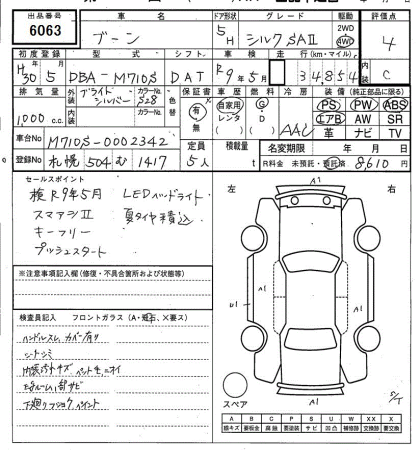 出品番号 車名 ドア形状 グレード 駆動 評価点
6063 ブーン 5H シルク SAⅡ 2WD 4WD 4
初度登録 型式 シフト 車検 走行(km・マイル) 内装
H30 5 DBA-M710S DAT R9年5月 34854 C
排気量 外装 カラーNo. 色替 保証書 車歴 燃料 冷房 装備(純正部品に限る)
1000 c.c. ブライトシルバー S28 有 無 自家用 レンタ G D AAC PS PW ABS
エアB AW SR
革 ナビ TV
車台No M710S-0002342 定員 積載量 名変期限 年 月 日
登録No 札幌 504 む 1417 5人 t R料金 未預託・預託済 8,610 円
セールスポイント
検R9年5月 LEDヘッドライト
スマアシⅡ 夏タイヤ積込
キーフリー
プッシュスタート
左 右
A1
※注意事項記入欄(修復・不具合箇所および状態等)
U1 A1 A1
検査員記入 フロントガラス(A・飛石、X要ス)
ハンドルスレ、カバー有り
シートシミ
A1
スペア
A B C P S U W X XX
線キズ 要板金 腐蝕 要塗装 サビ 凹凸 補修跡 要交換 交換跡